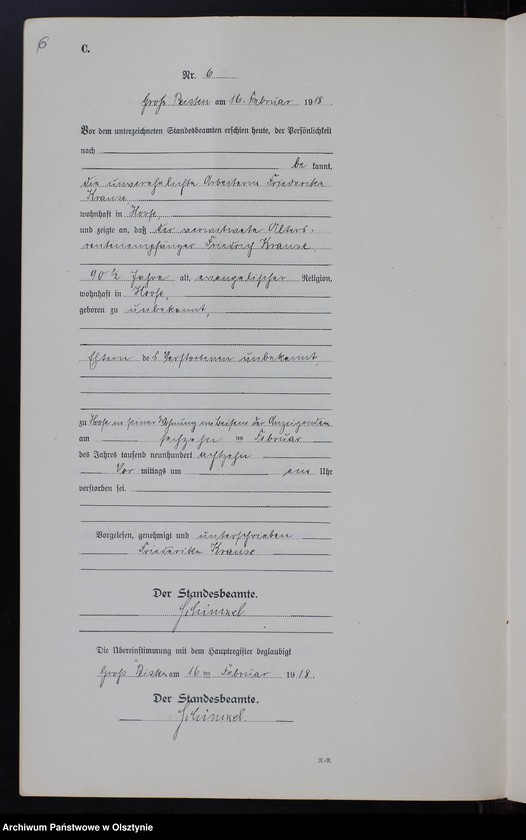 6
C.
Nr. 6
Groß am 16. Februar 1918.
Vor dem unterzeichneten Standesbeamten erschien heute, der Persönlichkeit
nach
be kannt,
die unverehelichte Arbeiterin Friederike
Krause,
wohnhaft in Hoofe,
und zeigte an, daß der verwitwete Alters-
rentenempfänger Friedrich Krause,
90 1/2 Jahre alt, evangelischer Religion,
wohnhaft in Hoofe,
geboren zu unbekannt,
Eltern des Verstorbenen unbekannt,
zu Hoofe in seiner Wohnung im Beisein der Anzeigenden
am sechzehn im Februar
des Jahres tausend neunhundert achtzehn
Vor mittags um ein Uhr
verstorben sei.
Vorgelesen, genehmigt und unterschrieben
Friederike Krause
Der Standesbeamte.
Schimmel.
Die Übereinstimmung mit dem Hauptregister beglaubigt
Groß am 16 ten Februar 1918.
Der Standesbeamte.
Schimmel.
R.-R.
Archiwum Państwowe w Olsztynie